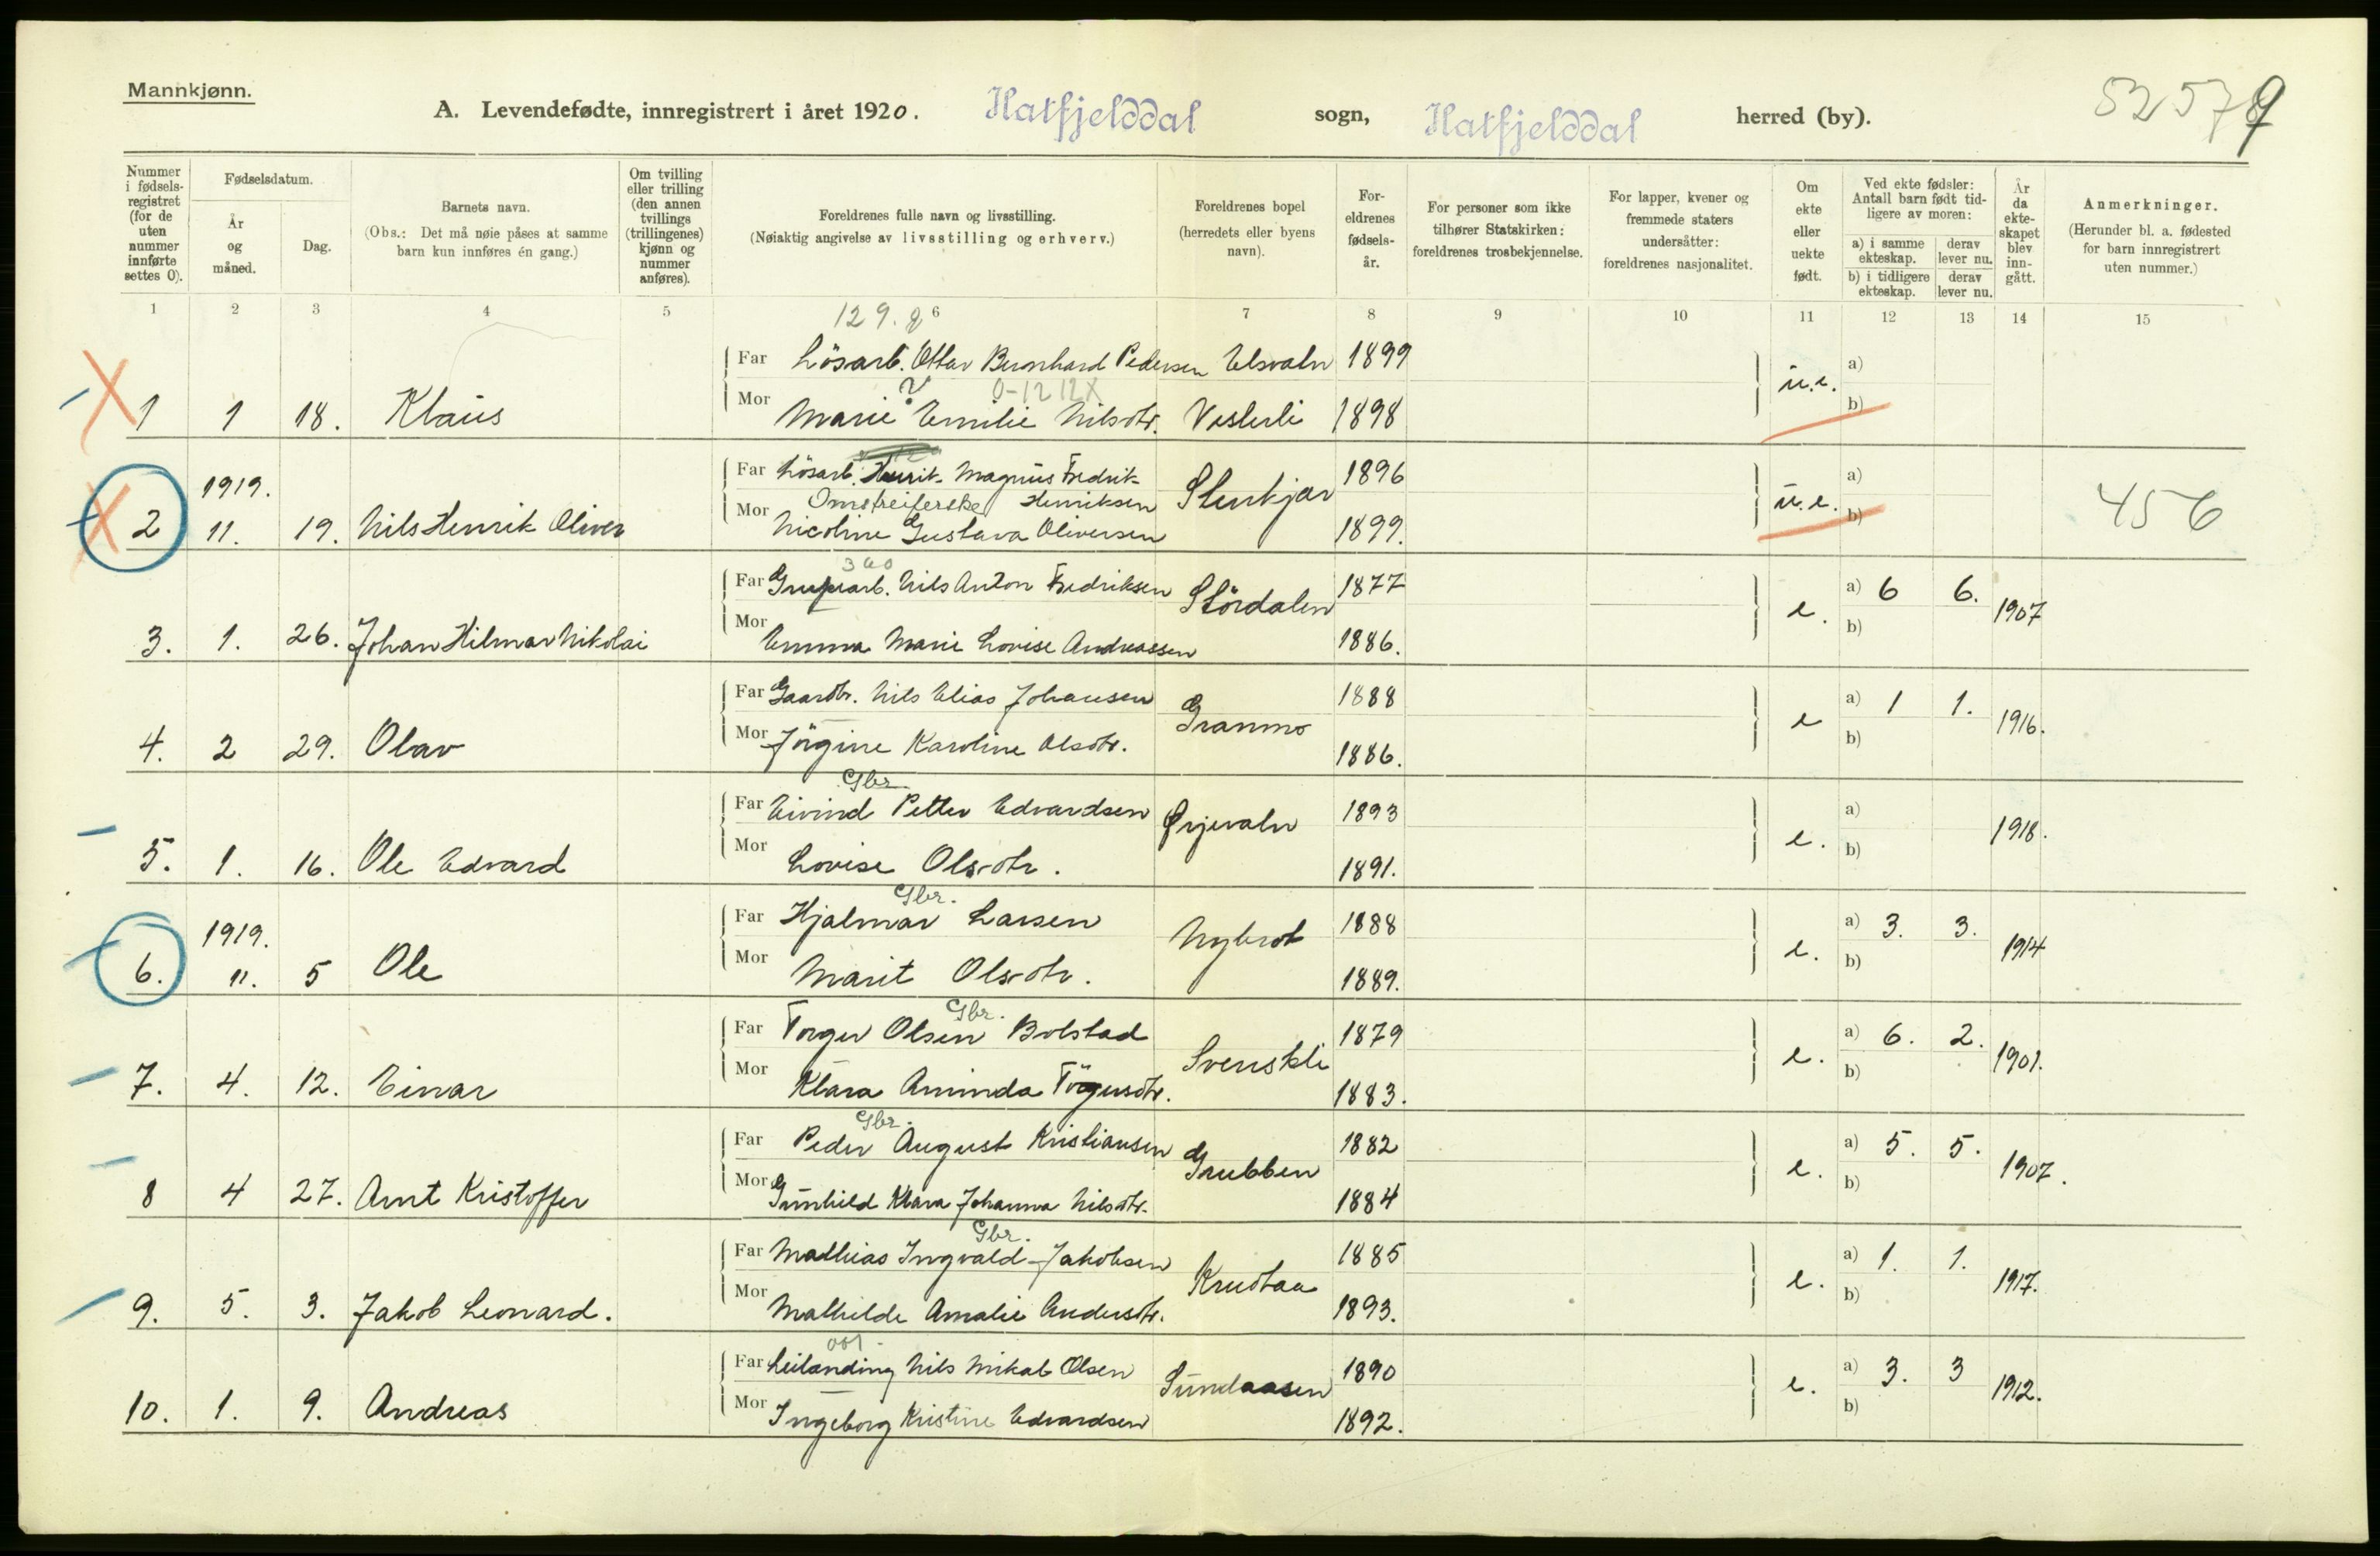 Mannkjønn.
A. Levendefødte, innregistrert i året 1920. Hatfjelddal sogn, Hatfjelddal herred (by).
Nummer i fødsels-registret (for de uten nummer innførte settes 0).
Fødselsdatum.
År og måned.
Dag.
Barnets navn.
(Obs.: Det må nøie påses at samme barn kun innføres én gang.)
Om tvilling eller trilling (den annen tvillings (trillingenes) kjønn og nummer anføres).
Foreldrenes fulle navn og livsstilling.
(Nøiaktig angivelse av livsstilling og erhverv.)
Foreldrenes bopel (herredets eller byens navn).
For-eldrenes fødsels-år.
For personer som ikke tilhører Statskirken: foreldrenes trosbekjennelse.
For lapper, kvener og fremmede staters undersåtter: foreldrenes nasjonalitet.
Om ekte eller uekte født.
Ved ekte fødsler: Antall barn født tid-ligere av moren:
a) i samme ekteskap.
derav lever nu.
b) i tidligere ekteskap.
derav lever nu.
År da ekte-skapet blev inn-gått.
Anmerkninger.
(Herunder bl. a. fødested for barn innregistrert uten nummer.)
1 2 3 4 5 6 7 8 9 10 11 12 13 14 15
129.8
Far Lösarb. Ottar Bernhard Pedersen Elsvatn 1899 a)
0-12 12X
1 1 18. Klaus Mor Marie Emilie Nilsdtr. Vesterli 1898 u.e. b)
1919. Far Lösarb. Henrik Magnus Fredrik Henriksen Stenkjær 1896 a)
Omstreiferske
2 11. 19. Nils Henrik Oliver Mor Nicoline Gustava Oliversen 1899. u.e. b) 456
360
Far Grubearb. Nils Anton Fredriksen Stördalen 1877 a) 6 6.
3. 1. 26. Johan Hilmar Nikolai Mor Emma Marie Lovise Andreassen 1886. e. b) 1907
Far Gaardbr. Nils Elias Johansen Granmo 1888 a) 1 1.
4. 2 29. Olav Mor Jörgine Karoline Olsdtr. 1886. e b) 1916.
Gbr.
Far Eivind Petter Edvardsen Ørjevatn 1893 a)
5. 1. 16. Ole Edvard Mor Lovise Olsdtr. 1891. e. b) 1918.
Gbr.
1919. Far Hjalmar Larsen Nybrot 1888 a) 3. 3.
6. 11. 5 Ole Mor Marit Olsdtr. 1889. e. b) 1914
Gbr.
Far Torger Olsen Bolstad Svenskli 1879 a) 6. 2.
7. 4. 12. Einar Mor Klara Aminda Törgersdtr. 1883. e. b) 1901.
Gbr.
Far Peder August Kristiansen Grubben 1882 a) 5. 5.
8 4 27. Arnt Kristoffer Mor Gunhild Klara Johanna Nilsdtr. 1884 e. b) 1907.
Gbr.
Far Mathias Ingvald Jakobsen Krudtaa 1885 a) 1. 1.
9. 5. 3. Jakob Leonard. Mor Mathilde Amalie Andersdtr. 1893. e. b) 1917.
001
Far Leilænding Nils Mikal Olsen Sundaasen 1890 a) 3. 3
10. 1. 9. Andreas Mor Ingeborg Kristine Edvardsen 1892. e. b) 1912.